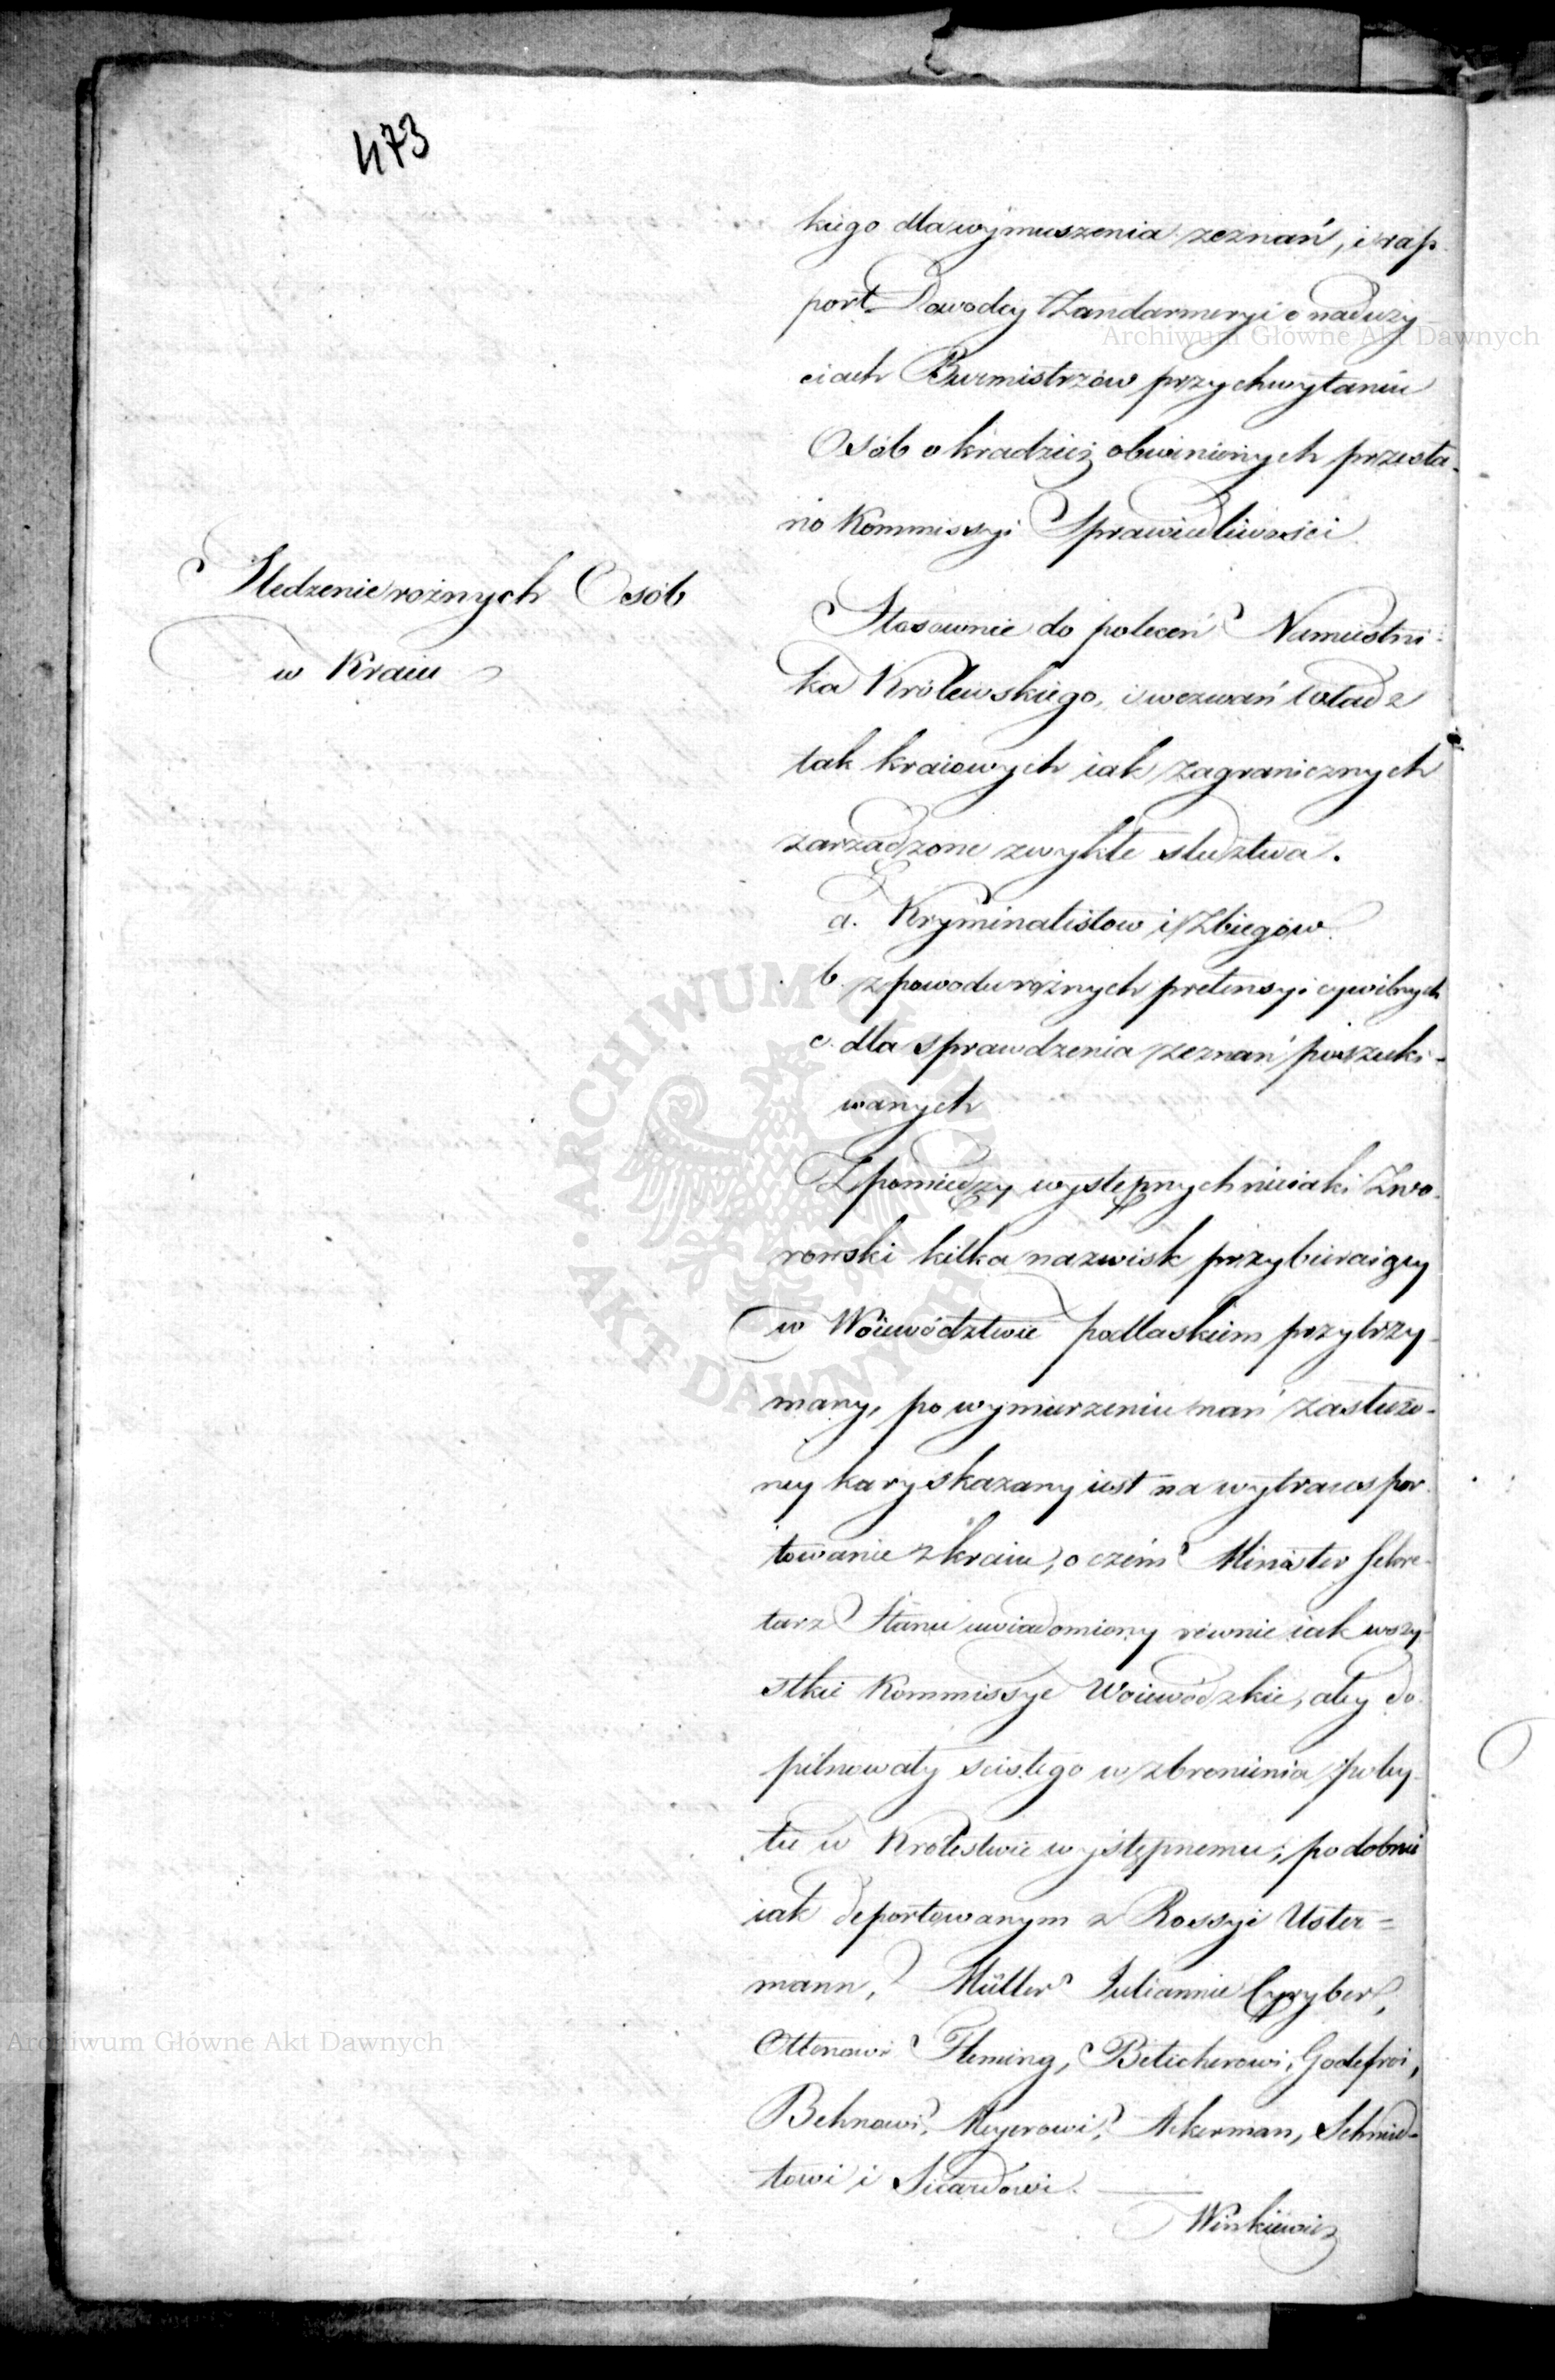 473
kiego dla wymuszenia zeznań, i rap-
port Dowodcy Żandarmeryi o naduży-
ciach Burmistrzów przy chwytaniu
Osób o kradzież obwinionych przesła-
no Kommissyi Sprawiedliwości
Sledzenie rożnych Osób
w Kraiu
Stosownie do poleceń Namiestni-
ka Królewskiego, i wezwań Władz
tak kraiowych iak zagranicznych
zarządzone zwykłe sledztwa.
a. Kryminalistow i Zbiegów
b. z powodu rożnych pretensyi cywilnych
c. dla sprawdzenia zeznań poszuki-
wanych
Z pomiędzy występnych nieiaki Zwo-
rowski kilka nazwisk przybieraiący
w Woiewództwie podlaskiem przytrzy-
many, po wymierzeniu nań zasłużo-
ney kary skazany iest na wytranspor-
towanie z kraiu, o czém Minister Sekre-
tarz Stanu uwiadomiony równie iak wszy-
stkie Kommissye Woiewódzkie, aby do-
pilnowały scisłego wzbronienia poby-
tu w Królestwie występnemu; podobnie
iak deportowanym z Rossyi Uster=
mann, Müller Juliannie Cyryber,
Ottonowi Fleming, Beticherowi, Godefroi,
Behnowi, Meyerowi, Ackerman, Schmied-
towi i Sicardowi.
Winkiewicz
Archiwum Główne Akt Dawnych
Archiwum Główne Akt Dawnych
ARCHIWUM GŁÓWNE AKT DAWNYCH